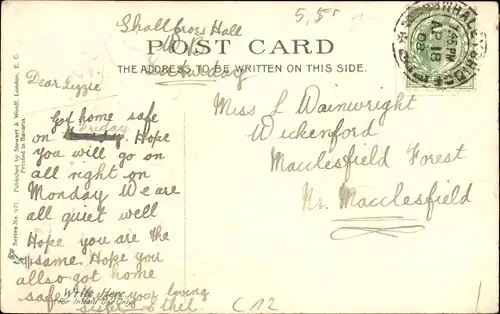 Shallcross Hall
W.B.
Saturday
5,5
POST CARD
THE ADDRESS TO BE WRITTEN ON THIS SIDE.
WHALEY BRIDGE
AP 18
08
Dear Lizzie
Got home safe
on Friday. Hope
you will go on
all right on
Monday We are
all quiet well
Hope you are the
same. Hope you
allso got home
safe. from your loving
sister Ethel.
Miss L Wainwright
Wickenford
Macclesfield Forest
Nr. Macclesfield
Write Here
For Inland Use Only
C12
Series No. 371. Published by Stewart & Woolf, London, E. C.
Printed in Bavaria